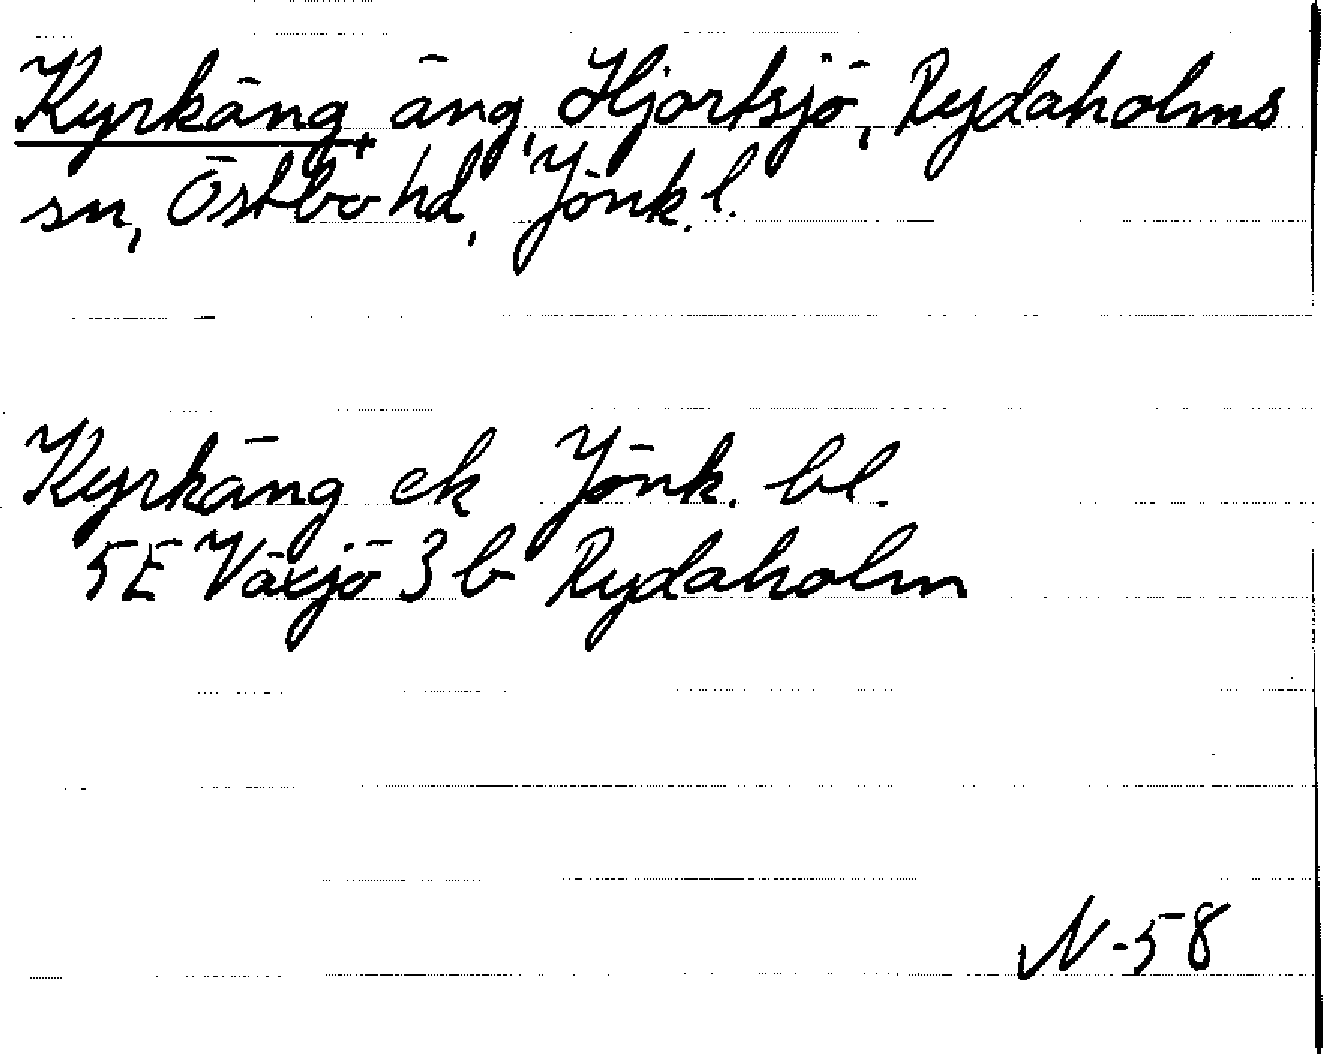 Kyrkäng, äng, Hjortsjö, Rydaholms
sn, Östbo hd, Jönk. l.
Kyrkäng ek Jönk. bl.
5E Växjö 3 b Rydaholm
N-58